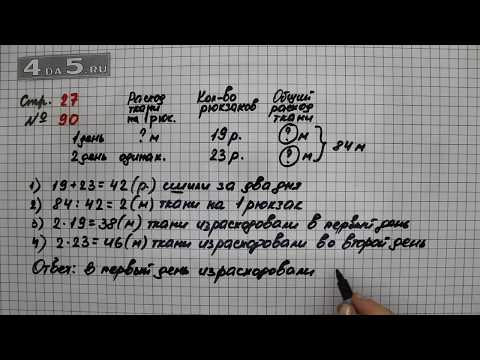 4DA5.RU
Стр. 27
№ 90
Расход ткани на 1 рюк.
Кол-во рюкзаков
Общий расход ткани
1 день ? м 19 р. ? м
2 день одинак. 23 р. ? м
84 м
1) 19+23=42 (р.) сшили за два дня
2) 84:42=2 (м) ткани на 1 рюкзак
3) 2·19=38(м) ткани израсходовали в первый день
4) 2·23=46(м) ткани израсходовали во второй день
Ответ: в первый день израсходовали